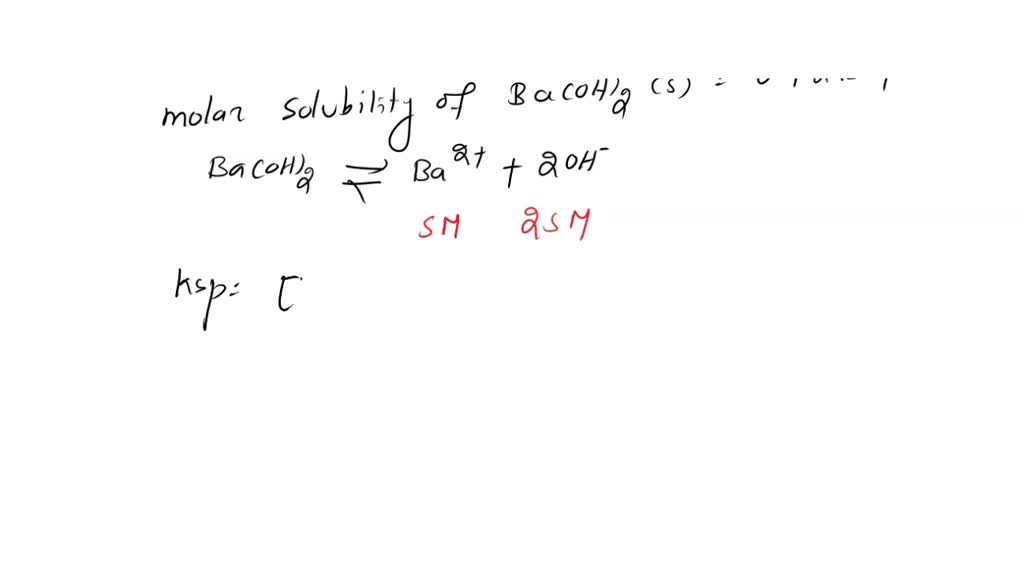 molar solubility of Ba(OH)2 (s) =
Ba(OH)2 ⇌ Ba2+ + 2OH-
SM 2SM
Ksp= [